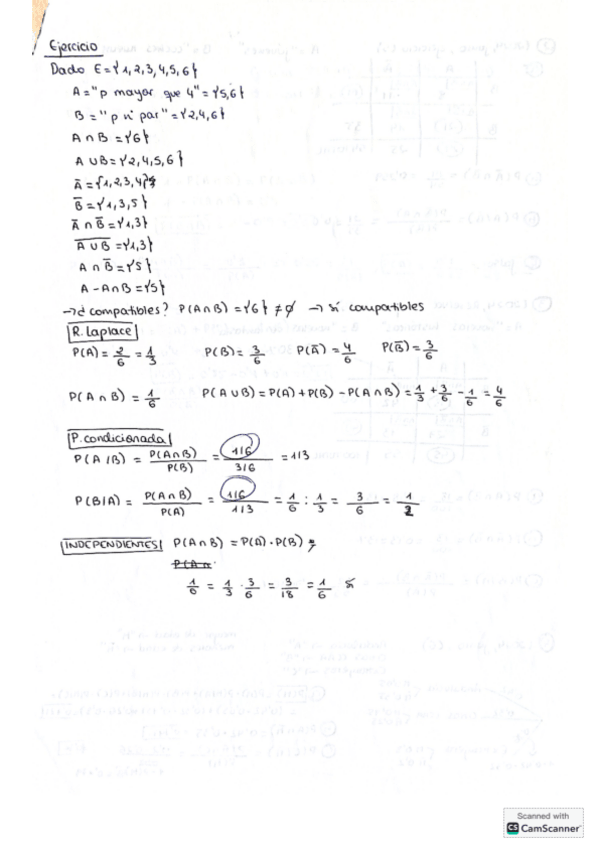 Ejercicio
Dado E={1,2,3,4,5,6}
A="p mayor que 4"={5,6}
B="p nº par"={2,4,6}
A∩B={6}
A∪B={2,4,5,6}
A̅={1,2,3,4}
B̅={1,3,5}
A̅∩B̅={1,3}
A∪B̅={1,3}
A∩B̅={5}
A-A∩B={5}
→¿compatibles? P(A∩B)={6}≠∅ → sí compatibles
R. Laplace
P(A)=2/6=1/3 P(B)=3/6 P(A̅)=4/6 P(B̅)=3/6
P(A∩B)=1/6 P(A∪B)=P(A)+P(B)-P(A∩B)=1/3+3/6-1/6=4/6
P. condicionada
P(A/B)=P(A∩B)/P(B)=1/6/3/6=1/3
P(B/A)=P(A∩B)/P(A)=1/6/1/3=1/6:1/3=3/6=1/2
INDEPENDIENTES P(A∩B)=P(A)·P(B)
P(A∩
1/6=1/3·3/6=3/18=1/6 sí
Scanned with
CS CamScanner